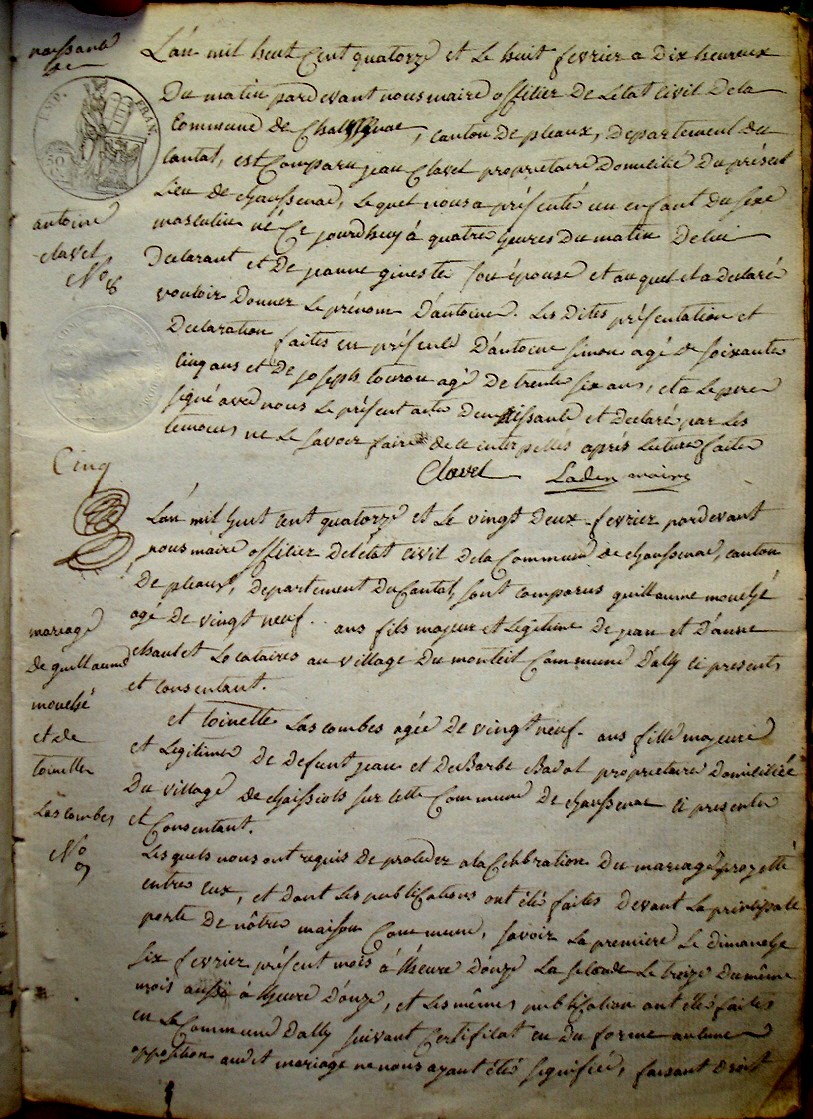 naissance
de
IMP. FRAN.
50
antoine
clavel
N° 8
L'an mil huit Cent quatorze et Le huit fevrier a Dix heures
Du matin pardevant nous maire officier De L'etat Civil De la
Commune de Chaussenac, canton De pleaux, Departement du
Cantal, est Comparu jean Clavel proprietaire Domicilié Du présent
Lieu de chaussenac, Lequel nous a présenté un enfant Du sexe
masculin né Ce jourdhuy à quatre heures Du matin De lui
Declarant et De jeanne gineste son épouse et au quel il a Declaré
vouloir Donner Le prénom D'antoine. Les Dites présentation et
Declaration faites en présence D'antoine simon agé de soixante
Cinq ans et De joseph touron agé De trente six ans, et a Le pere
signé avec nous Le présent acte De naissance et Declaré par Les
temoins ne Le savoir faire de ce interpellés après Lecture faite
Clavel Laden maire
Cinq
L'an mil huit Cent quatorze et Le vingt Deux fevrier pardevant
nous maire officier De l'état Civil De la Commune de chaussenac, canton
De pleaux, Departement Du Cantal, sont comparus guillaume
agé De vingt neuf.. ans fils majeur et Legitime De jean et D'anne
Locataires au village Du monteil Commune D'ally ci presents
et consentant.
et toinette Lascombes agée De vingt neuf.. ans fille majeure
et Legitime De Defunt jean et De Barbe proprietaire Domiciliée
Du village De chaissiols sur cette Commune De chaussenac ci presente
et Consentant.
Lesquels nous ont requis De proceder a la Celebration Du mariage projetté
entre eux, et Dont Les publications ont été faites Devant La principale
porte De nôtre maison Commune, savoir La premiere Le Dimanche
six fevrier présent mois à l'heure D'onze La seconde Le treize Du même
mois aussi à l'heure D'onze, et Les mêmes publication ont été faites
en La Commune D'ally suivant Certificat en Du forme aucune
opposition audit mariage ne nous ayant été signifiée, faisant Droit
mariage
De guillaume
et de
toinette
Lascombes
N°